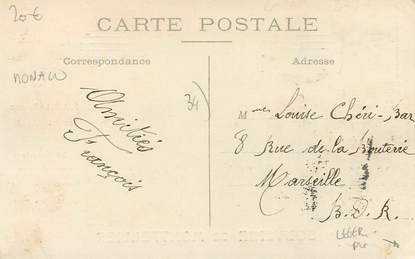 20€
CARTE POSTALE
Correspondance
Adresse
MONACO
34
Amitiés
François
Mme Louise Chéri-Bar
8 Rue de la
Marseille
B.D.R.
LEGER